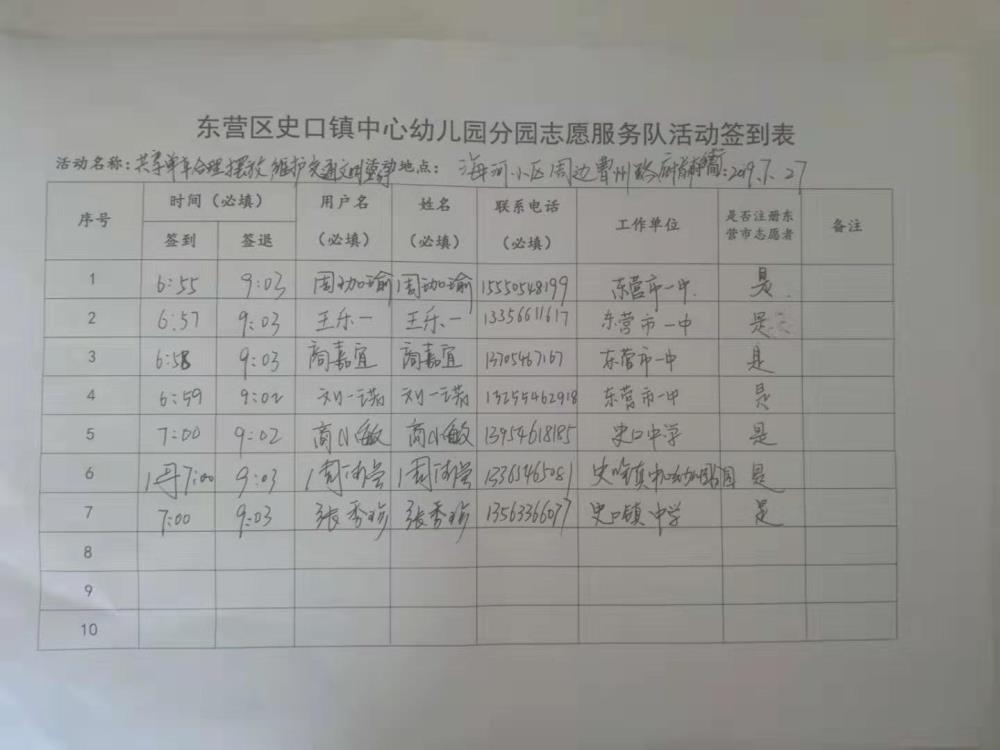 东营区史口镇中心幼儿园分园志愿服务队活动签到表
活动名称：共享单车合理摆放 维护交通文明 活动地点： 海河小区周边曹州路 时间：2019.7.27
序号 时间（必填） 签到 签退 用户名（必填） 姓名（必填） 联系电话（必填） 工作单位 是否注册东营市志愿者 备注
1 6:55 9:03 周珈瑜 周珈瑜 15550548199 东营市一中 是
2 6:57 9:03 王乐一 王乐一 13356611617 东营市一中 是
3 6:58 9:03 商嘉宜 商嘉宜 13705467167 东营市一中 是
4 6:59 9:02 刘一诺 刘一诺 13255462918 东营市一中 是
5 7:00 9:02 商小敏 商小敏 13954618185 史口中学 是
6 7:00 9:03 1336546508 史口镇中心幼儿园分园 是
7 7:00 9:03 张秀珍 张秀珍 13563366077 史口镇中学 是
8
9
10